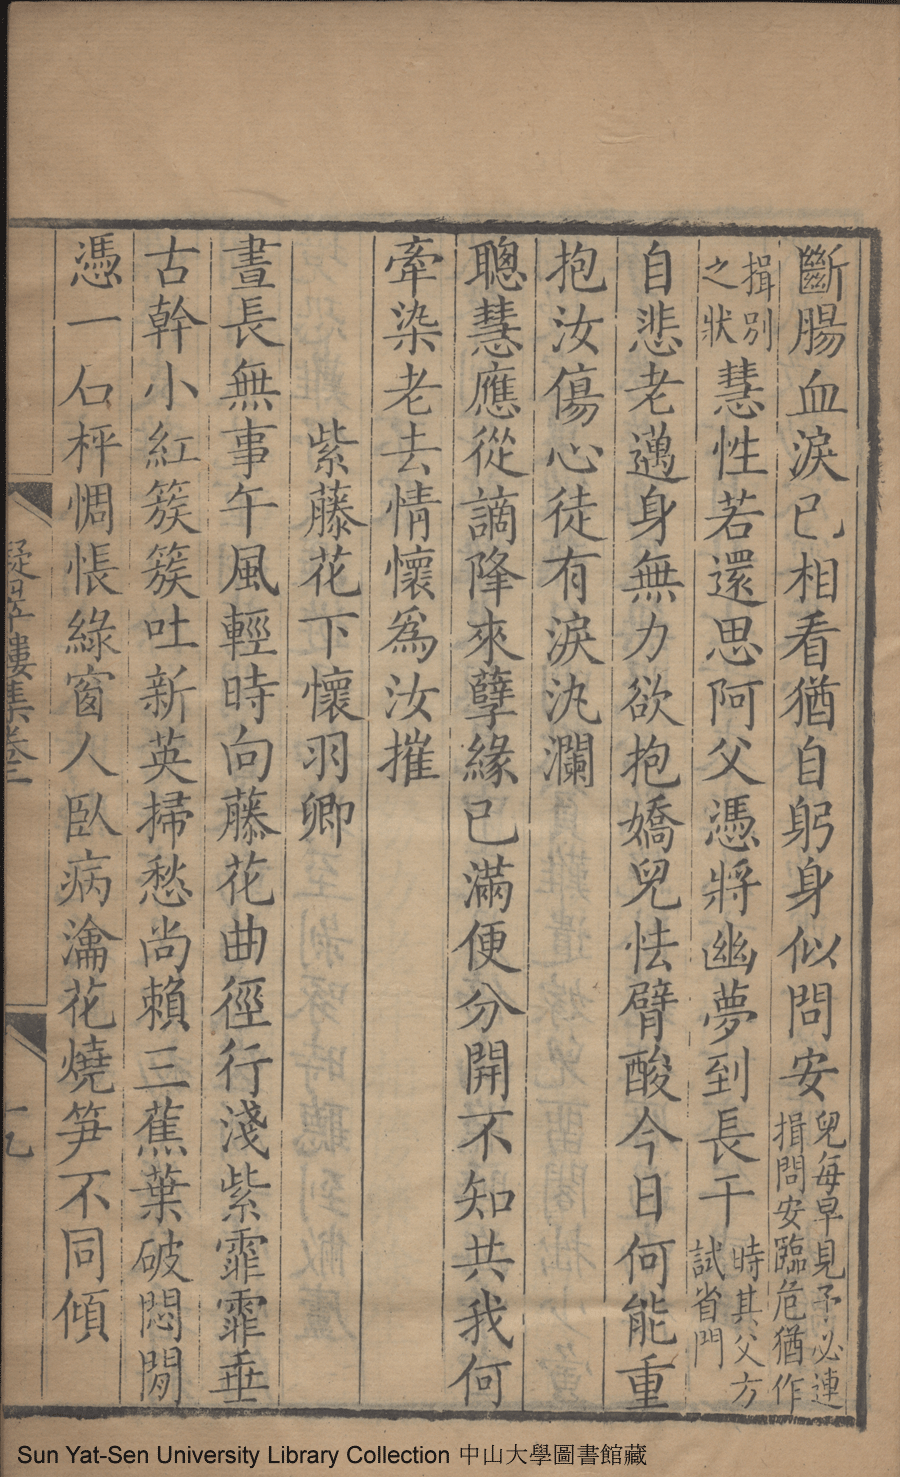 斷腸血淚已相看猶自躬身似問安兒每早見予必連揖問安臨危猶作
揖別之狀慧性若還思阿父憑將幽夢到長干時其父方試省門
自悲老邁身無力欲抱嬌兒怯臂酸今日何能重
抱汝傷心徒有淚汍瀾
聰慧應從謫降來孽緣已滿便分開不知共我何
牽染老去情懷為汝摧
紫藤花下懷羽卿
晝長無事午風輕時向藤花曲徑行淺紫霏霏垂
古幹小紅簇簇吐新英掃愁尚賴三蕉葉破悶閒
憑一石枰惆悵綠窗人臥病瀹花燒笋不同傾
凝翠樓集卷三
十九
Sun Yat-Sen University Library Collection 中山大學圖書館藏